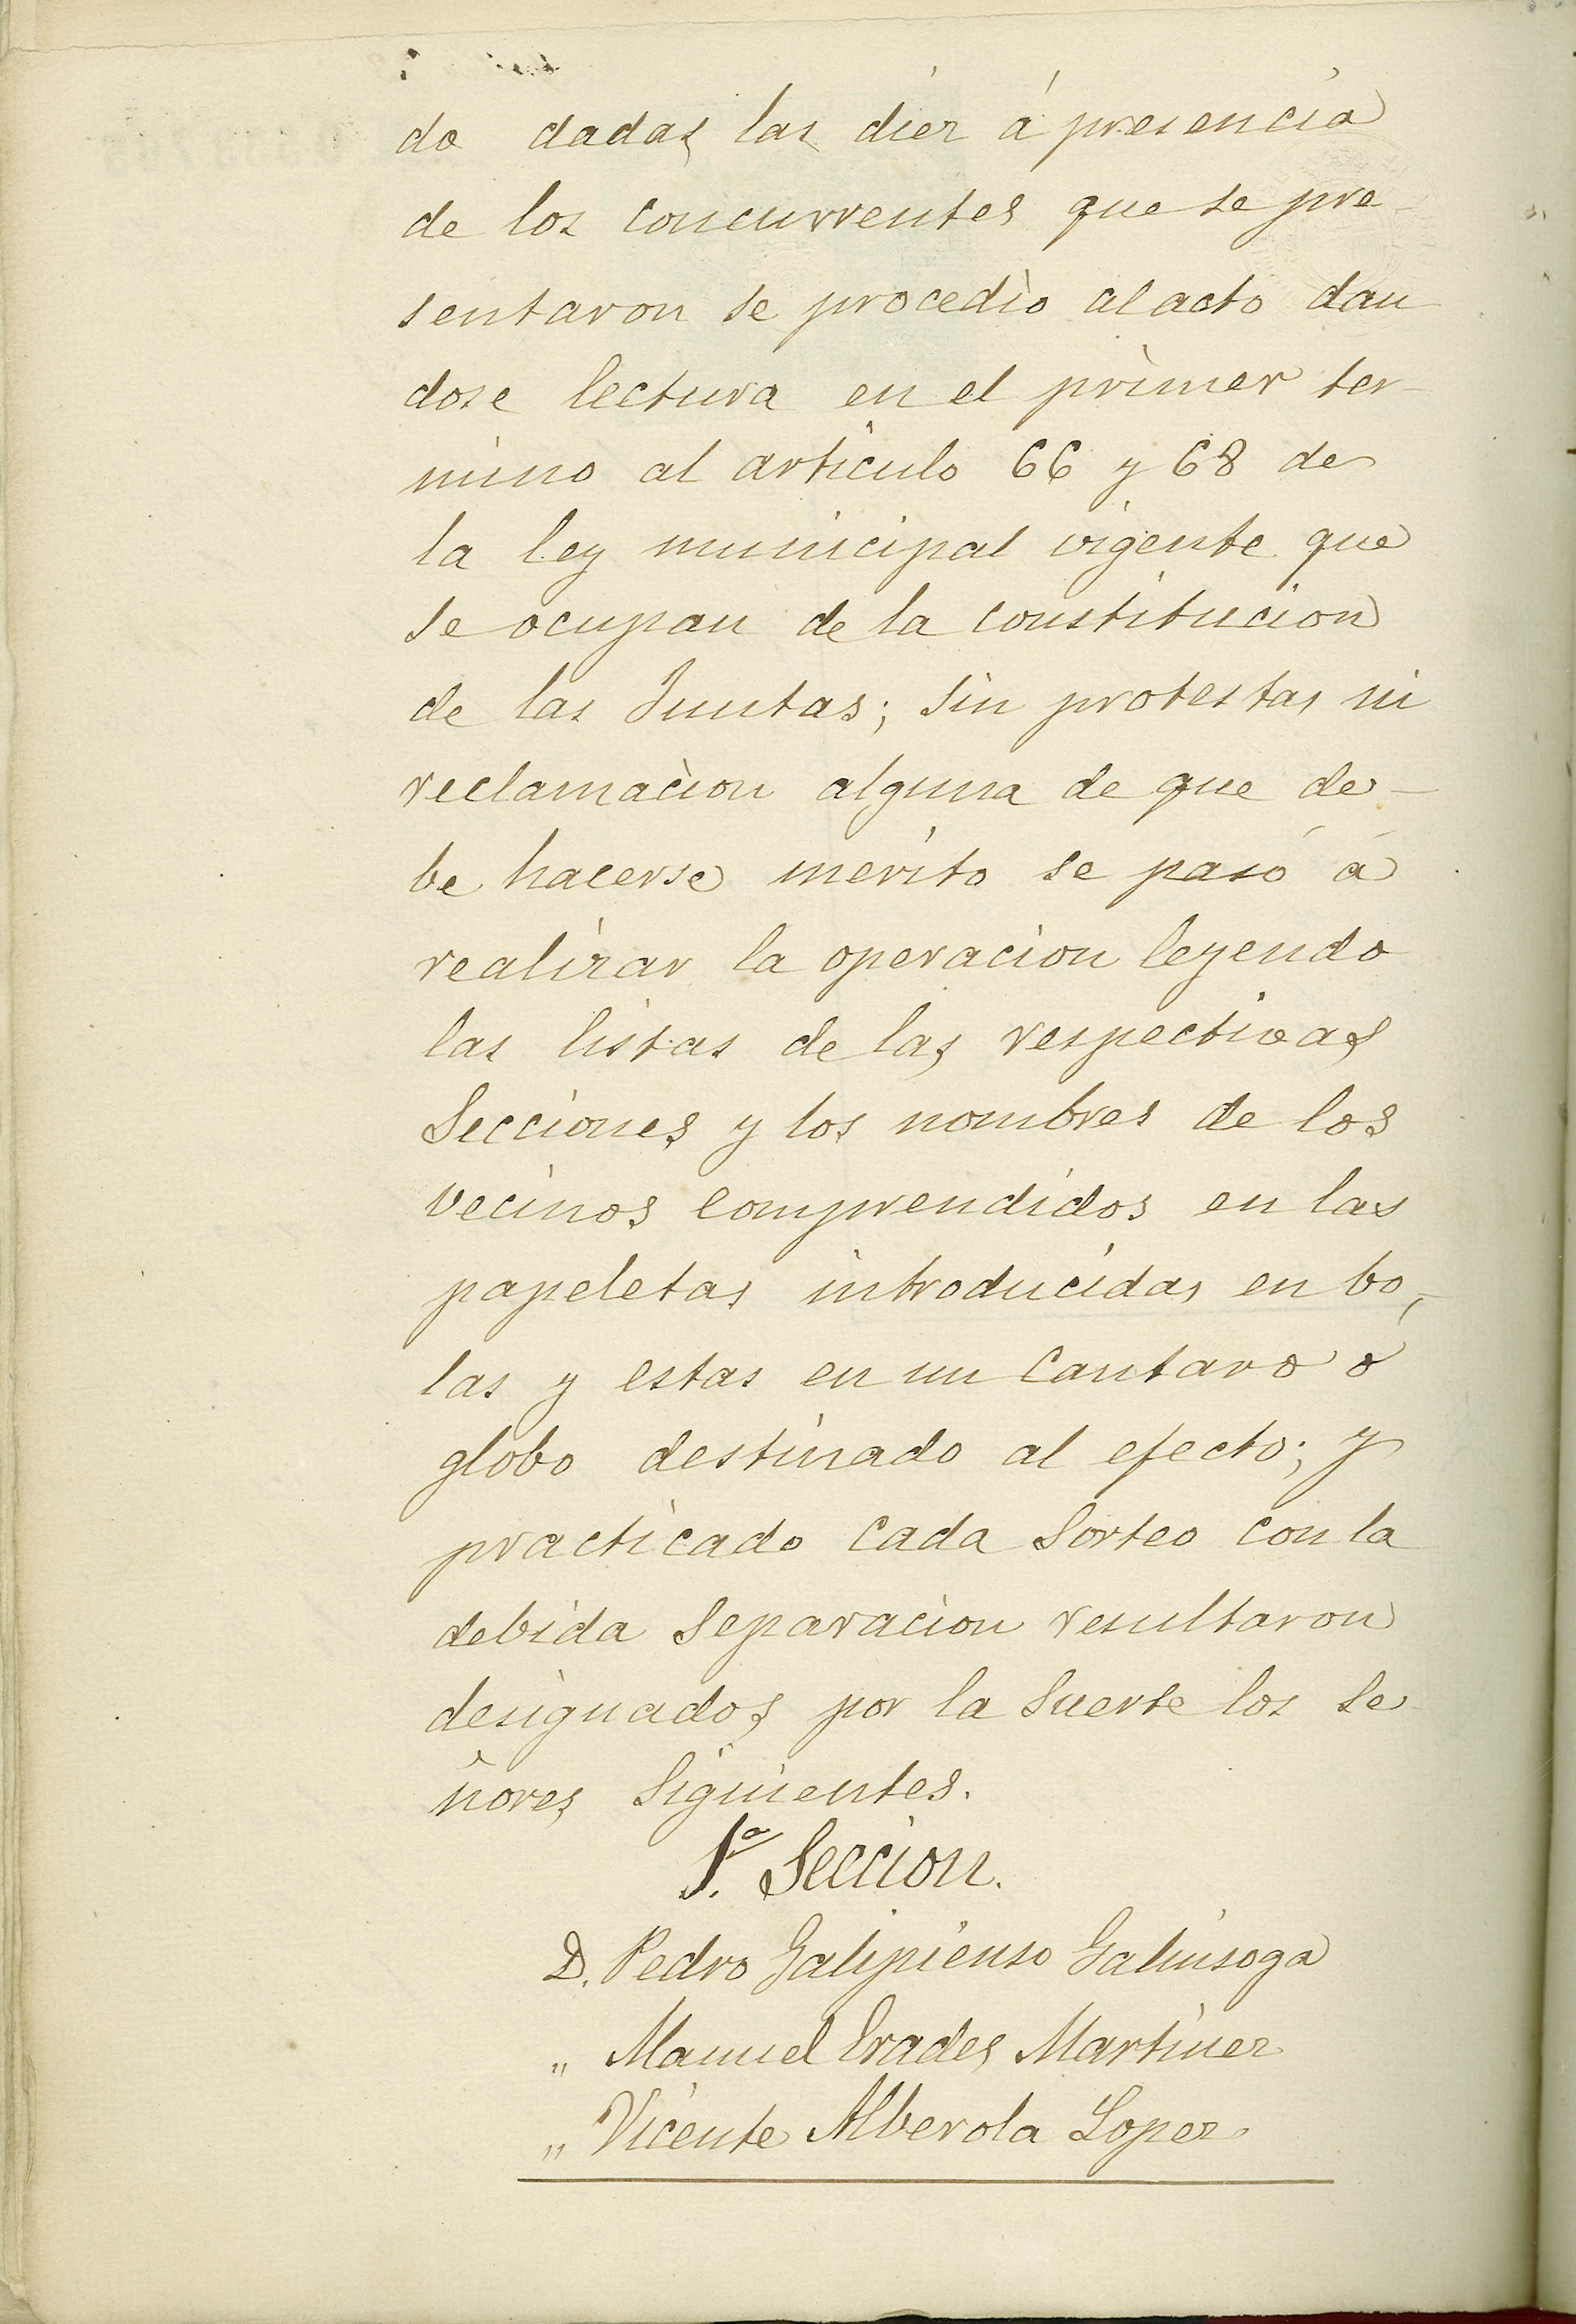 do dadas las diez á presencia
de los concurrentes que se pre
sentaron se procedio al acto dan
dose lectura en el primer ter-
mino al articulo 66 y 68 de
la ley municipal vigente que
se ocupan de la constitucion
de las Juntas; sin protestas ni
reclamacion alguna de que de-
be hacerse merito se pasó á
realizar la operacion leyendo
las listas de las respectivas
Secciones y los nombres de los
vecinos comprendidos en las
papeletas introducidas en bo-
las y estas en un Cantaro ó
globo destinado al efecto; y
practicado cada Sorteo con la
debida Separacion resultaron
designados por la Suerte los Se
ñores Siguientes.
1ª. Seccion.
D. Pedro Galipienso Galinsoga
" Manuel Erades Martinez
" Vicente Alberola Lopez